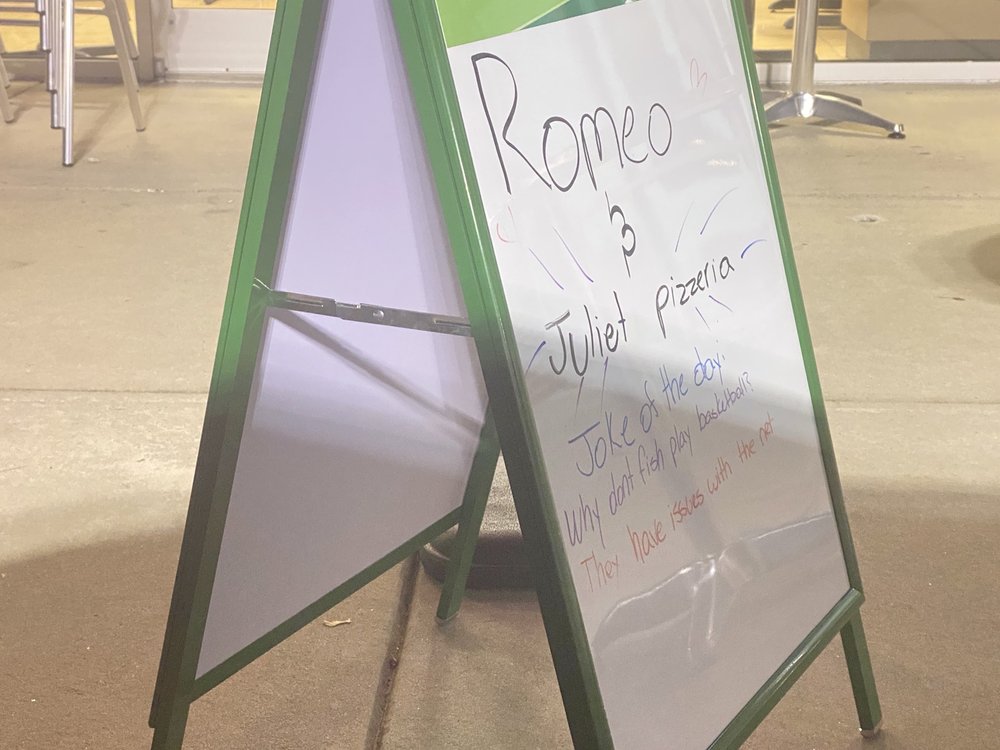 Romeo
&
Juliet pizzeria
Joke of the day:
Why dont fish play basketball?
They have issues with the net